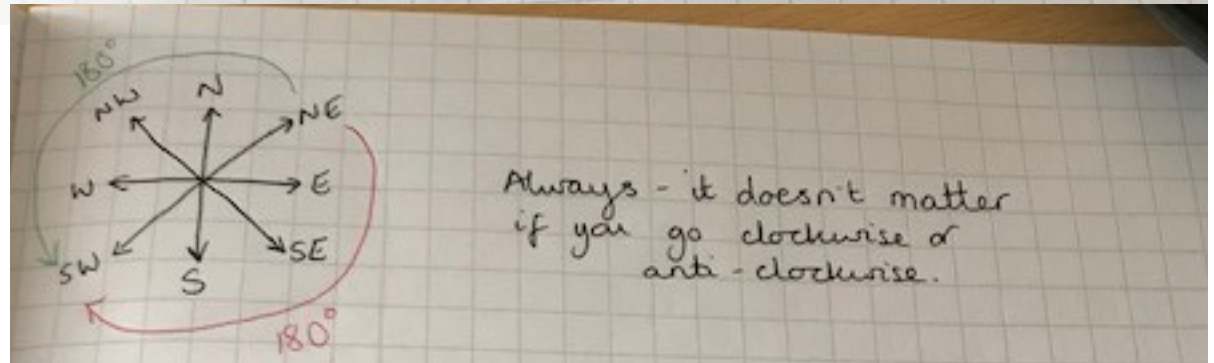 180°
N
NW
NE
W
E
SW
SE
S
180°
Always - it doesn't matter
if you go clockwise or
anti-clockwise.